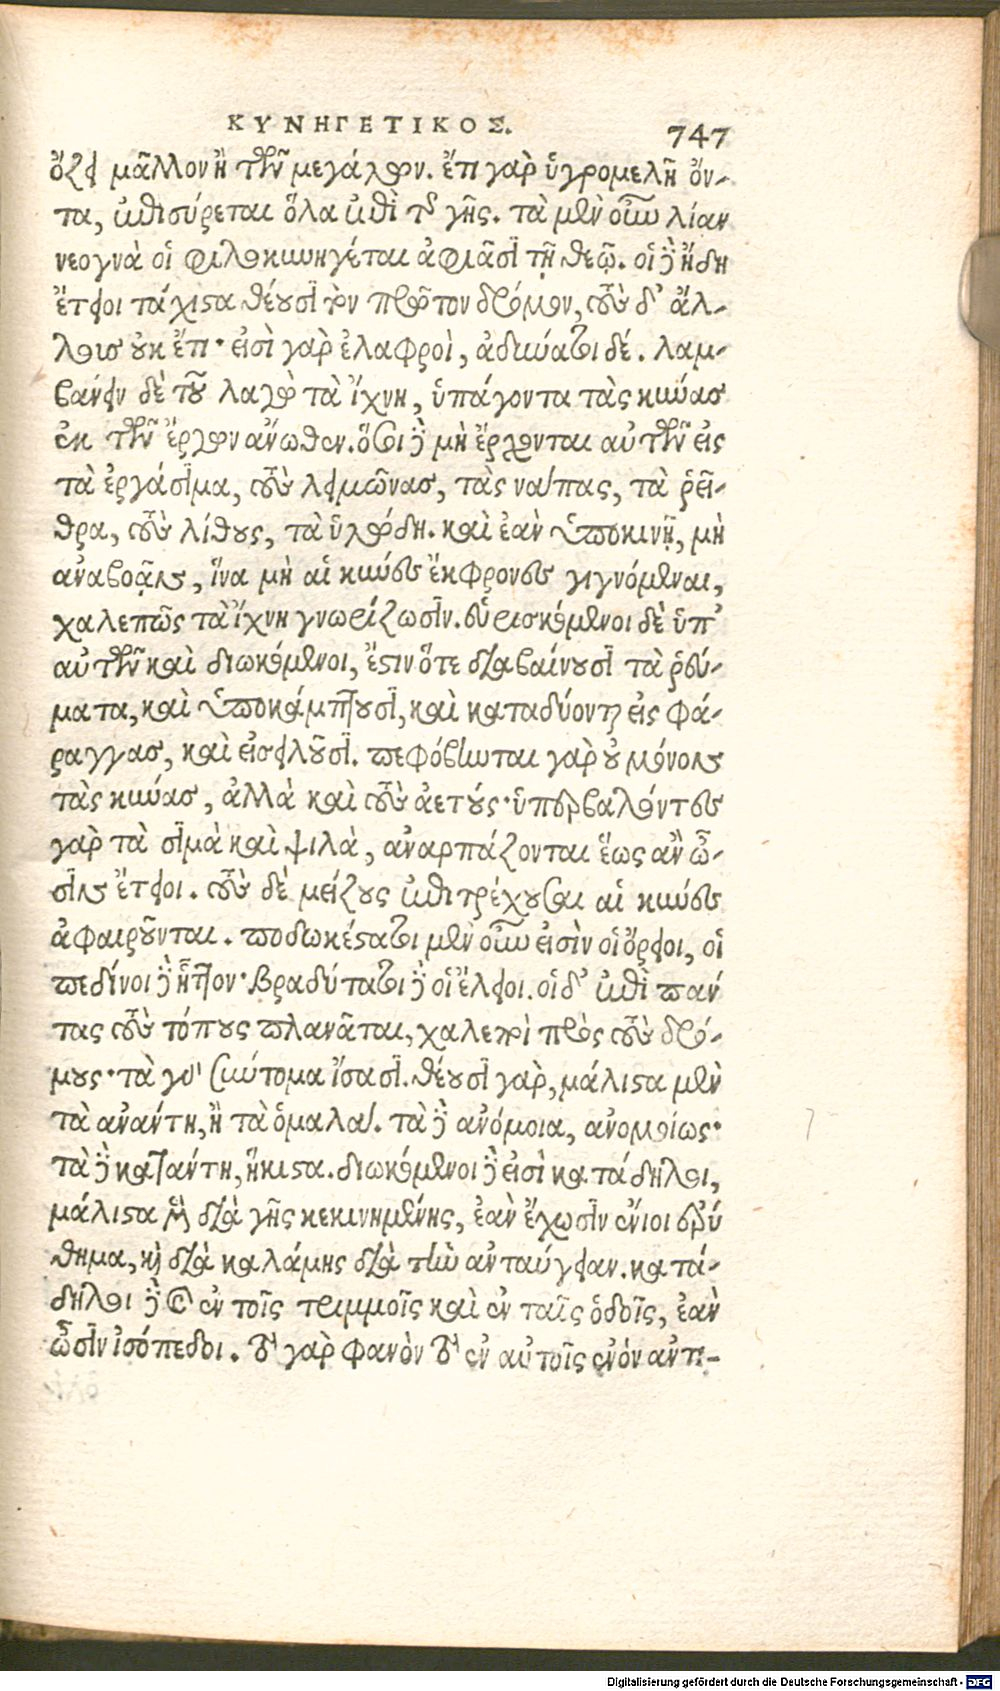 ΚΥΝΗΓΕΤΙΚΟΣ. 747
ὄζει μᾶλλον ἢ τῶν μεγάλων. ἔτι γὰρ ὑγρομελῆ ὄν-
τα, ἐπισύρεται ὅλα ἐπὶ τῆς γῆς. τὰ μὲν οὖν λίαν
νεογνὰ οἱ φιλοκυνηγέται ἀφιᾶσι τῇ θεῷ. οἱ δὲ ἤδη
ἔτειοι τάχιστα θέουσι τὸν πρῶτον δρόμον, τοὺς δ' ἄλ-
λοις οὐκ ἔτι· εἰσὶ γὰρ ἐλαφροὶ, ἀδύνατοι δέ. λαμ-
βάνειν δὲ τοῦ λαγὼ τὰ ἴχνη, ὑπάγοντα τὰς κύνας
ἐκ τῶν ἔργων ἄνωθεν. ὅσοι δὲ μὴ ἔρχονται αὐτῶν εἰς
τὰ ἐργάσιμα, τοὺς λειμῶνας, τὰς νάπας, τὰ ῥεῖ-
θρα, τοὺς λίθους, τὰ ὑλώδη. καὶ ἐὰν ὑποκινῇ, μὴ
ἀναβοᾷν, ἵνα μὴ αἱ κύνες ἔκφρονες γιγνόμεναι,
χαλεπῶς τὰ ἴχνη γνωρίζωσιν. εὑρισκόμενοι δὲ ὑπ'
αὐτῶν καὶ διωκόμενοι, ἔστιν ὅτε διαβαίνουσι τὰ ῥεύ-
ματα, καὶ ὑποκάμπτουσι, καὶ καταδύονται εἰς φά-
ραγγας, καὶ εἰσειλοῦσι. πεφόβηνται γὰρ οὐ μόνον
τὰς κύνας, ἀλλὰ καὶ τοὺς ἀετούς· ὑπερβάλοντες
γὰρ τὰ σιμὰ καὶ ψιλὰ, ἀναρπάζονται ἕως ἂν ὦ-
σιν ἔτειοι. τοὺς δὲ μείζους ἐπιτρέχουσαι αἱ κύνες
ἀφαιροῦνται. ποδωκέστατοι μὲν οὖν εἰσὶν οἱ ὄρειοι, οἱ
πεδινοὶ δὲ ἧττον· βραδύτατοι δὲ οἱ ἕλειοι. οἱ δ' ἐπὶ πάν
τας τοὺς τόπους πλανᾶται, χαλεποὶ πρὸς τοὺς δρό-
μους· τὰ γὰρ σύντομα ἴσασι. θέουσι γὰρ, μάλιστα μὲν
τὰ ἀνάντη, ἢ τὰ ὁμαλά. τὰ δὲ ἀνόμοια, ἀνομοίως·
τὰ δὲ κατάντη, ἥκιστα. διωκόμενοι δὲ εἰσὶ κατάδηλοι,
μάλιστα μὲν διὰ γῆς κεκινημένης, ἐὰν ἔχωσιν ἔνιοι ἐρύ
θημα, καὶ διὰ καλάμης διὰ τὴν ἀνταύγειαν. κατά-
δηλοι δὲ καὶ ἐν τοῖς τριμμοῖς καὶ ἐν ταῖς ὁδοῖς, ἐὰν
ὦσιν ἰσόπεδοι. τὸ γὰρ φανὸν τὸ ἐν αὐτοῖς ἐνὸν ἀντι-
Digitalisierung gefördert durch die Deutsche Forschungsgemeinschaft - DFG